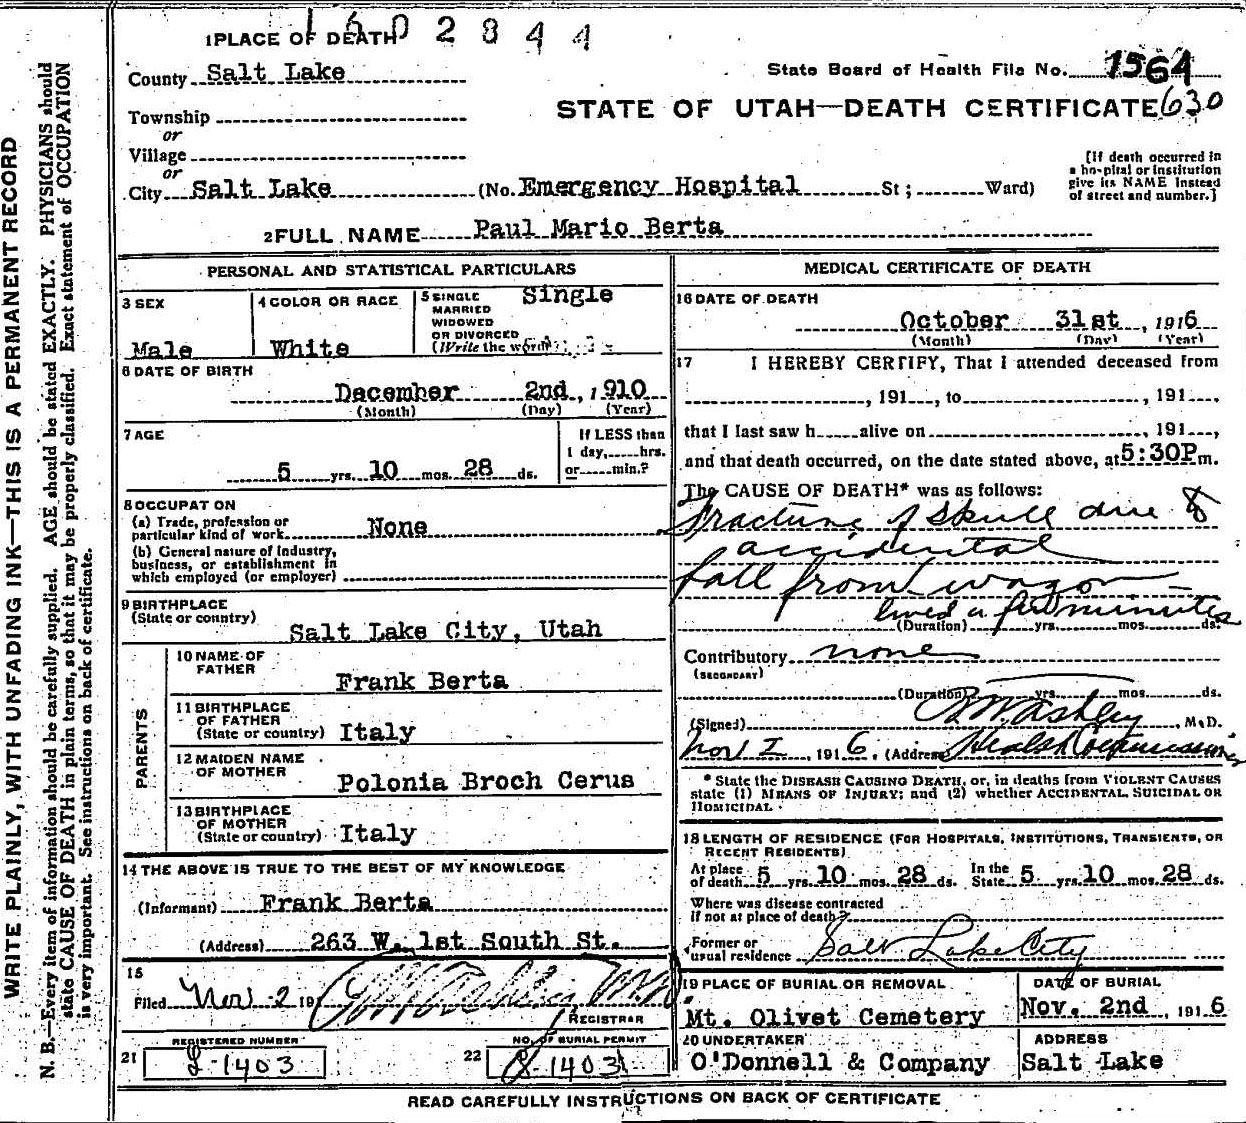 1602844
1 PLACE OF DEATH
County Salt Lake
State Board of Health File No. 1564
Township
or
STATE OF UTAH—DEATH CERTIFICATE 630
Village
or
City Salt Lake (No. Emergency Hospital St; Ward)
[If death occurred in
a hospital or institution
give its NAME instead
of street and number.]
2 FULL NAME Paul Mario Berta
PERSONAL AND STATISTICAL PARTICULARS
3 SEX
Male
4 COLOR OR RACE
White
5 SINGLE
MARRIED
WIDOWED
OR DIVORCED
(Write the word)
Single
6 DATE OF BIRTH
December 2nd, 1910
(Month) (Day) (Year)
7 AGE
5 yrs. 10 mos. 28 ds.
If LESS than
1 day, hrs.
or min.?
8 OCCUPATION
(a) Trade, profession or
particular kind of work None
(b) General nature of Industry,
business, or establishment in
which employed (or employer)
9 BIRTHPLACE
(State or country)
Salt Lake City, Utah
PARENTS
10 NAME OF
FATHER
Frank Berta
11 BIRTHPLACE
OF FATHER
(State or country) Italy
12 MAIDEN NAME
OF MOTHER
Polonia Broch Cerus
13 BIRTHPLACE
OF MOTHER
(State or country) Italy
14 THE ABOVE IS TRUE TO THE BEST OF MY KNOWLEDGE
(Informant) Frank Berta
(Address) 263 W. 1st South St.
15
Filed Nov 2 19
REGISTRAR
21 REGISTERED NUMBER
L-1403
22 NO. OF BURIAL PERMIT
1403
MEDICAL CERTIFICATE OF DEATH
16 DATE OF DEATH
October 31st, 1916
(Month) (Day) (Year)
17 I HEREBY CERTIFY, That I attended deceased from
, 191 , to , 191 ,
that I last saw h alive on , 191 ,
and that death occurred, on the date stated above, at 5:30P m.
The CAUSE OF DEATH* was as follows:
Fracture of skull due to
accidental
fall from wagon
lived a few minutes
(Duration) yrs. mos. ds.
Contributory none
(SECONDARY)
(Duration) yrs. mos. ds.
(Signed) Ashley, M.D.
Nov 1, 1916. (Address) Health Commissioner
* State the DISEASE CAUSING DEATH, or, in deaths from VIOLENT CAUSES
state (1) MEANS OF INJURY; and (2) whether ACCIDENTAL, SUICIDAL OR
HOMICIDAL.
18 LENGTH OF RESIDENCE (FOR HOSPITALS, INSTITUTIONS, TRANSIENTS, OR
RECENT RESIDENTS)
At place
of death 5 yrs. 10 mos. 28 ds. In the
State 5 yrs. 10 mos. 28 ds.
Where was disease contracted
if not at place of death?
Former or
usual residence Salt Lake City
19 PLACE OF BURIAL OR REMOVAL
Mt. Olivet Cemetery
DATE OF BURIAL
Nov. 2nd, 1916
20 UNDERTAKER
O'Donnell & Company
ADDRESS
Salt Lake
READ CAREFULLY INSTRUCTIONS ON BACK OF CERTIFICATE
WRITE PLAINLY, WITH UNFADING INK—THIS IS A PERMANENT RECORD
N. B.—Every item of information should be carefully supplied. AGE should be stated EXACTLY. PHYSICIANS should
state CAUSE OF DEATH in plain terms, so that it may be properly classified. Exact statement of OCCUPATION
is very important. See instructions on back of certificate.